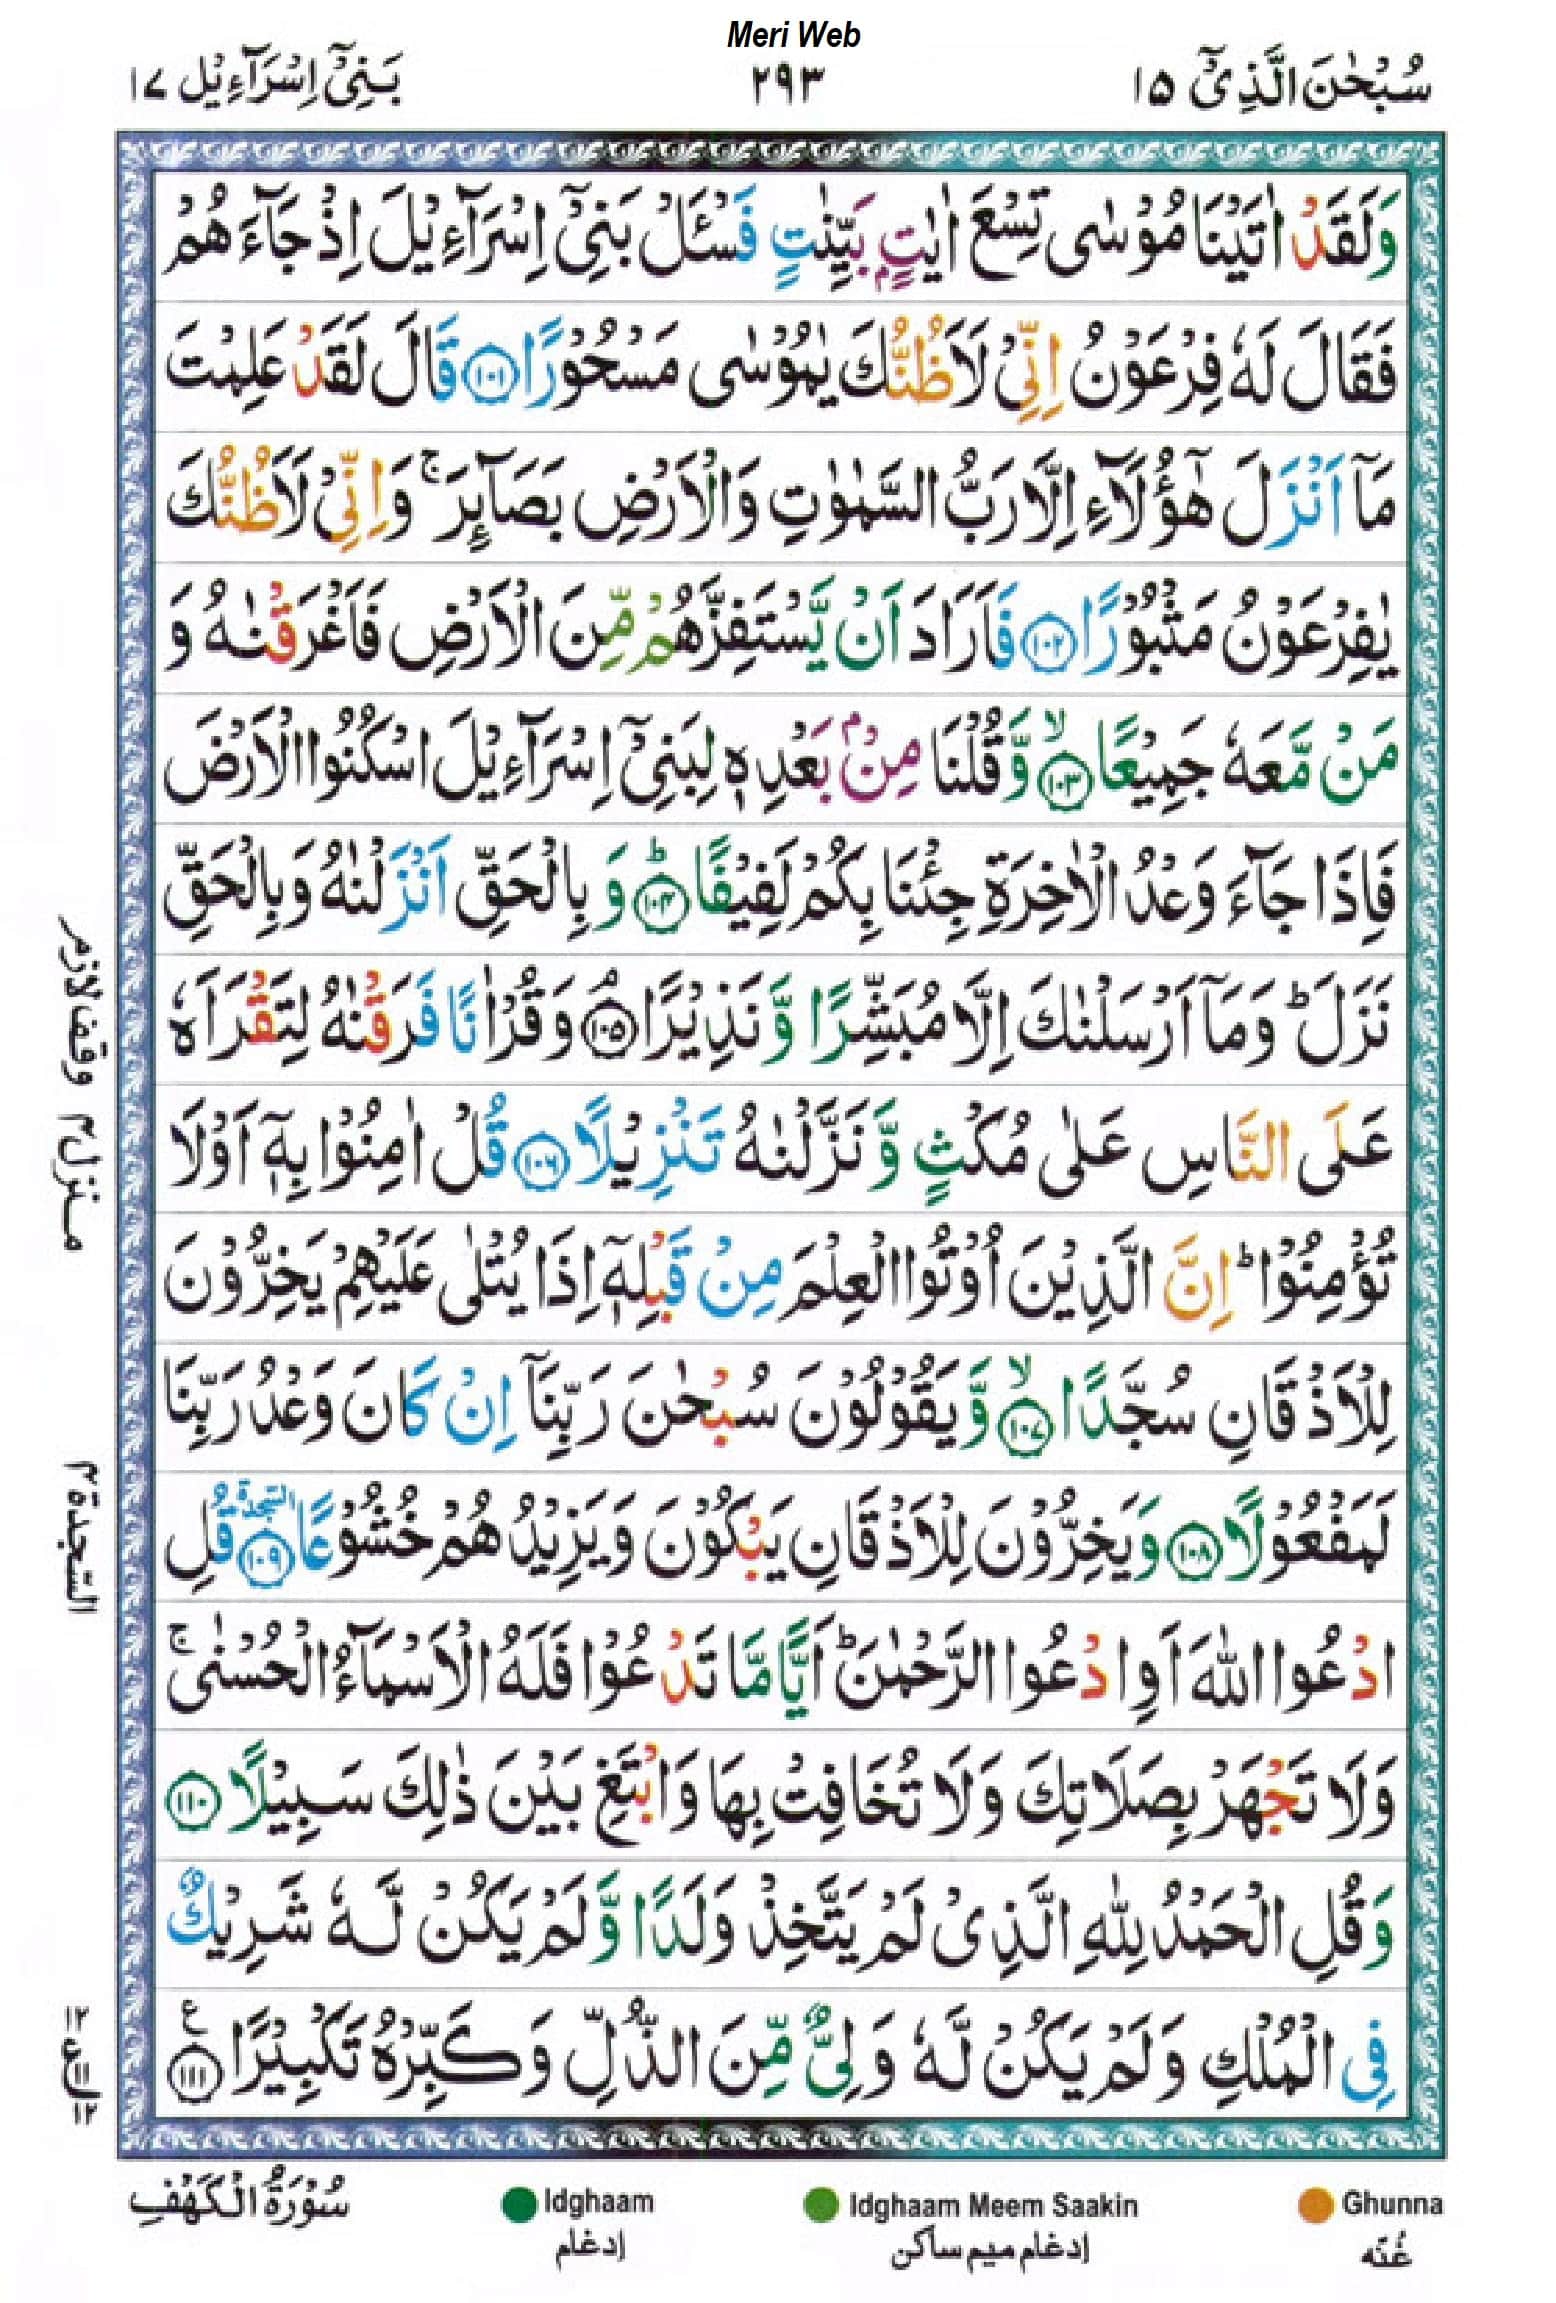 Meri Web
سُبْحٰنَ الَّذِیْۤ ۱۵
۲۹۳
بَنِیْۤ اِسْرَآءِیْل ۱۷
وَلَقَدْ اٰتَیْنَا مُوْسٰی تِسْعَ اٰیٰتٍۭ بَیِّنٰتٍ فَسْئَلْ بَنِیْۤ اِسْرَآءِیْلَ اِذْ جَآءَهُمْ
فَقَالَ لَهٗ فِرْعَوْنُ اِنِّیْ لَاَظُنُّكَ یٰمُوْسٰی مَسْحُوْرًا ﴿۱۰۱﴾ قَالَ لَقَدْ عَلِمْتَ
مَاۤ اَنْزَلَ هٰۤؤُلَآءِ اِلَّا رَبُّ السَّمٰوٰتِ وَالْاَرْضِ بَصَآئِرَ ۚ وَاِنِّیْ لَاَظُنُّكَ
یٰفِرْعَوْنُ مَثْبُوْرًا ﴿۱۰۲﴾ فَاَرَادَ اَنْ یَّسْتَفِزَّهُمْ مِّنَ الْاَرْضِ فَاَغْرَقْنٰهُ وَ
مَنْ مَّعَهٗ جَمِیْعًا ۙ﴿۱۰۳﴾ وَّقُلْنَا مِنْۢ بَعْدِهٖ لِبَنِیْۤ اِسْرَآءِیْلَ اسْكُنُوا الْاَرْضَ
فَاِذَا جَآءَ وَعْدُ الْاٰخِرَةِ جِئْنَا بِكُمْ لَفِیْفًا ؕ﴿۱۰۴﴾ وَ بِالْحَقِّ اَنْزَلْنٰهُ وَبِالْحَقِّ
نَزَلَ ؕ وَمَاۤ اَرْسَلْنٰكَ اِلَّا مُبَشِّرًا وَّ نَذِیْرًا ۘ﴿۱۰۵﴾ وَقُرْاٰنًا فَرَقْنٰهُ لِتَقْرَاَهٗ
عَلَی النَّاسِ عَلٰی مُكْثٍ وَّ نَزَّلْنٰهُ تَنْزِیْلًا ﴿۱۰۶﴾ قُلْ اٰمِنُوْا بِهٖۤ اَوْ لَا
تُؤْمِنُوْا ؕ اِنَّ الَّذِیْنَ اُوْتُوا الْعِلْمَ مِنْ قَبْلِهٖۤ اِذَا یُتْلٰی عَلَیْهِمْ یَخِرُّوْنَ
لِلْاَذْقَانِ سُجَّدًا ۙ﴿۱۰۷﴾ وَّ یَقُوْلُوْنَ سُبْحٰنَ رَبِّنَاۤ اِنْ كَانَ وَعْدُ رَبِّنَا
لَمَفْعُوْلًا ﴿۱۰۸﴾ وَیَخِرُّوْنَ لِلْاَذْقَانِ یَبْكُوْنَ وَیَزِیْدُهُمْ خُشُوْعًا السجدة ﴿۱۰۹﴾ قُلِ
ادْعُوا اللّٰهَ اَوِ ادْعُوا الرَّحْمٰنَ ؕ اَیًّا مَّا تَدْعُوْا فَلَهُ الْاَسْمَآءُ الْحُسْنٰی ۚ
وَلَا تَجْهَرْ بِصَلَاتِكَ وَلَا تُخَافِتْ بِهَا وَابْتَغِ بَیْنَ ذٰلِكَ سَبِیْلًا ﴿۱۱۰﴾
وَقُلِ الْحَمْدُ لِلّٰهِ الَّذِیْ لَمْ یَتَّخِذْ وَلَدًا وَّ لَمْ یَكُنْ لَّهٗ شَرِیْكٌ
فِی الْمُلْكِ وَلَمْ یَكُنْ لَّهٗ وَلِیٌّ مِّنَ الذُّلِّ وَكَبِّرْهُ تَكْبِیْرًا ﴿۱۱۱﴾ ع
منزل ۴ وقف لازم
السّجدة ۴
۱۲
ع
۱۲
سُوْرَةُ الْكَهْفِ
Idghaam
إدغام
Idghaam Meem Saakin
إدغام ميم ساكن
Ghunna
غُنّه